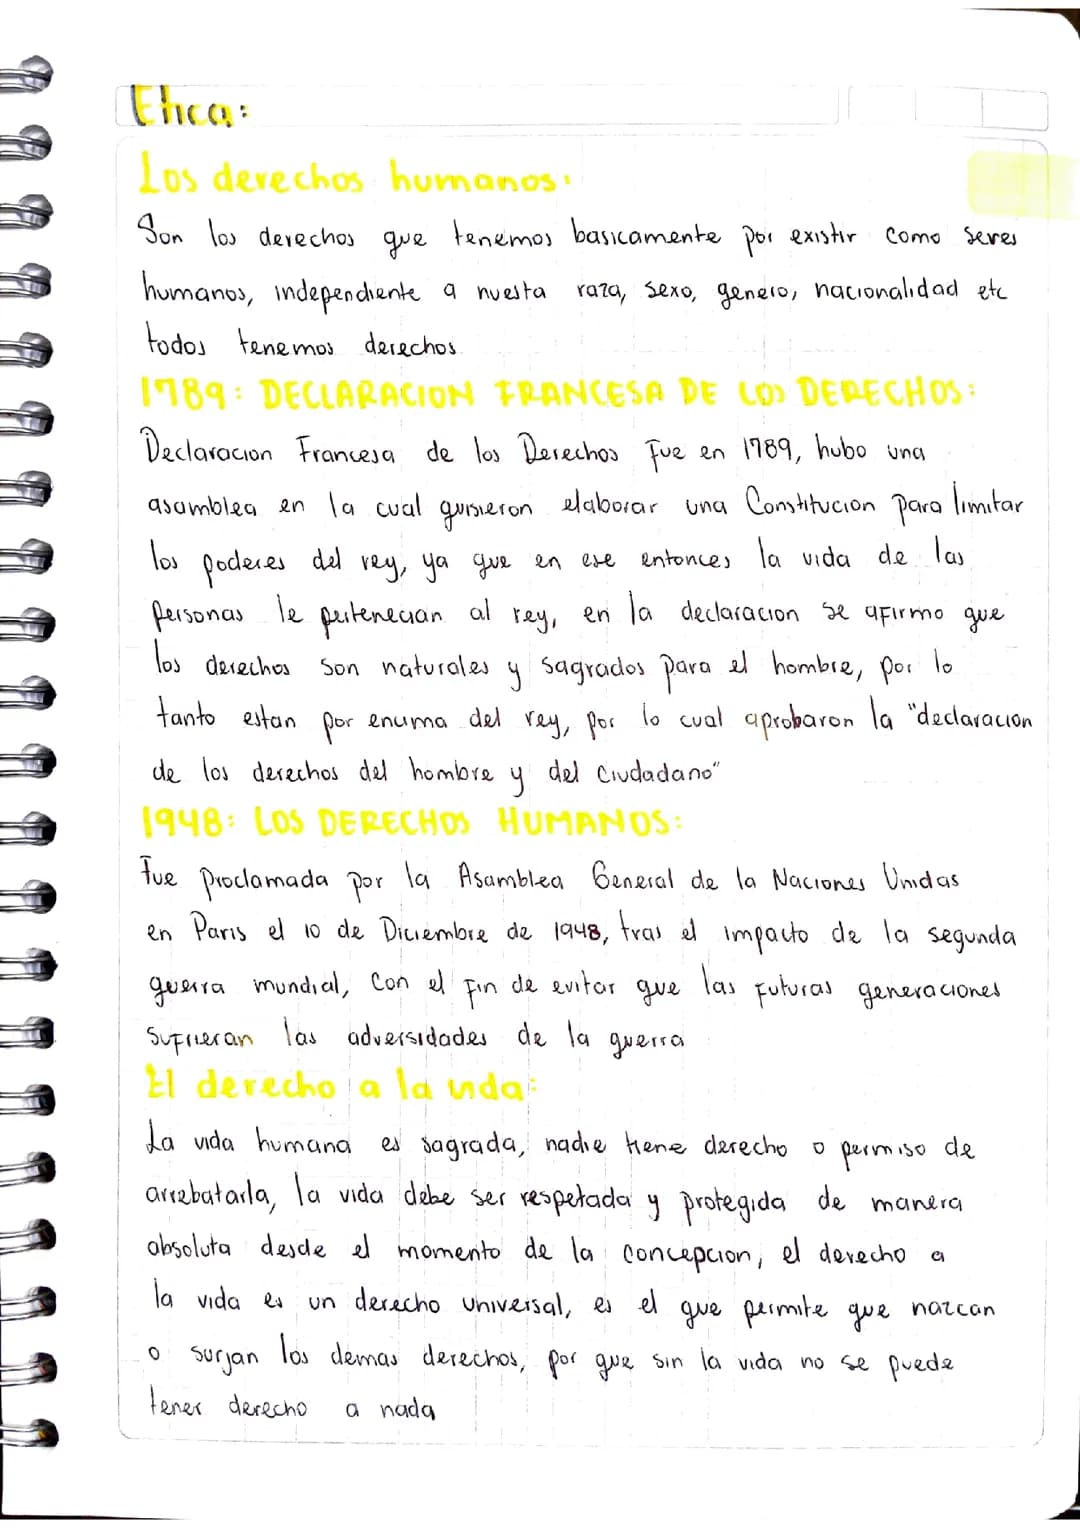 Etica:
Los derechos humanos:
Son los derechos que tenemos basicamente por existir como seres
humanos, independiente a nuesta raza, sexo, genero, nacionalidad etc
todos tenemos derechos.
1789: DECLARACION FRANCESA DE LOS DERECHOS:
Declaracion Francesa de los Derechos Fue en 1789, hubo una
asamblea en la cual quisieron elaborar una Constitucion para limitar
los poderes del rey, ya que en ese entonces la vida de las
personas le pertenecian al rey, en la declaracion se afirmo que
los derechos son naturales y sagrados para el hombre, por lo
tanto estan por encima del rey, por lo cual aprobaron la "declaracion
de los derechos del hombre y del Ciudadano"
1948: LOS DERECHOS HUMANOS:
Fue Proclamada por la Asamblea General de la Naciones Unidas
en Paris el 10 de Diciembre de 1948, tras el impacto de la segunda
guerra mundial, Con el fin de evitar que las futuras generaciones
sufrieran las adversidades de la guerra
El derecho a la vida:
La vida humana es sagrada, nadie tiene derecho o permiso de
arrebatarla, la vida debe ser respetada y protegida de manera
absoluta desde el momento de la concepcion, el derecho a
la vida es un derecho universal, es el que permite que nazcan
o surjan los demas derechos, por que sin la vida no se puede
tener derecho a nada